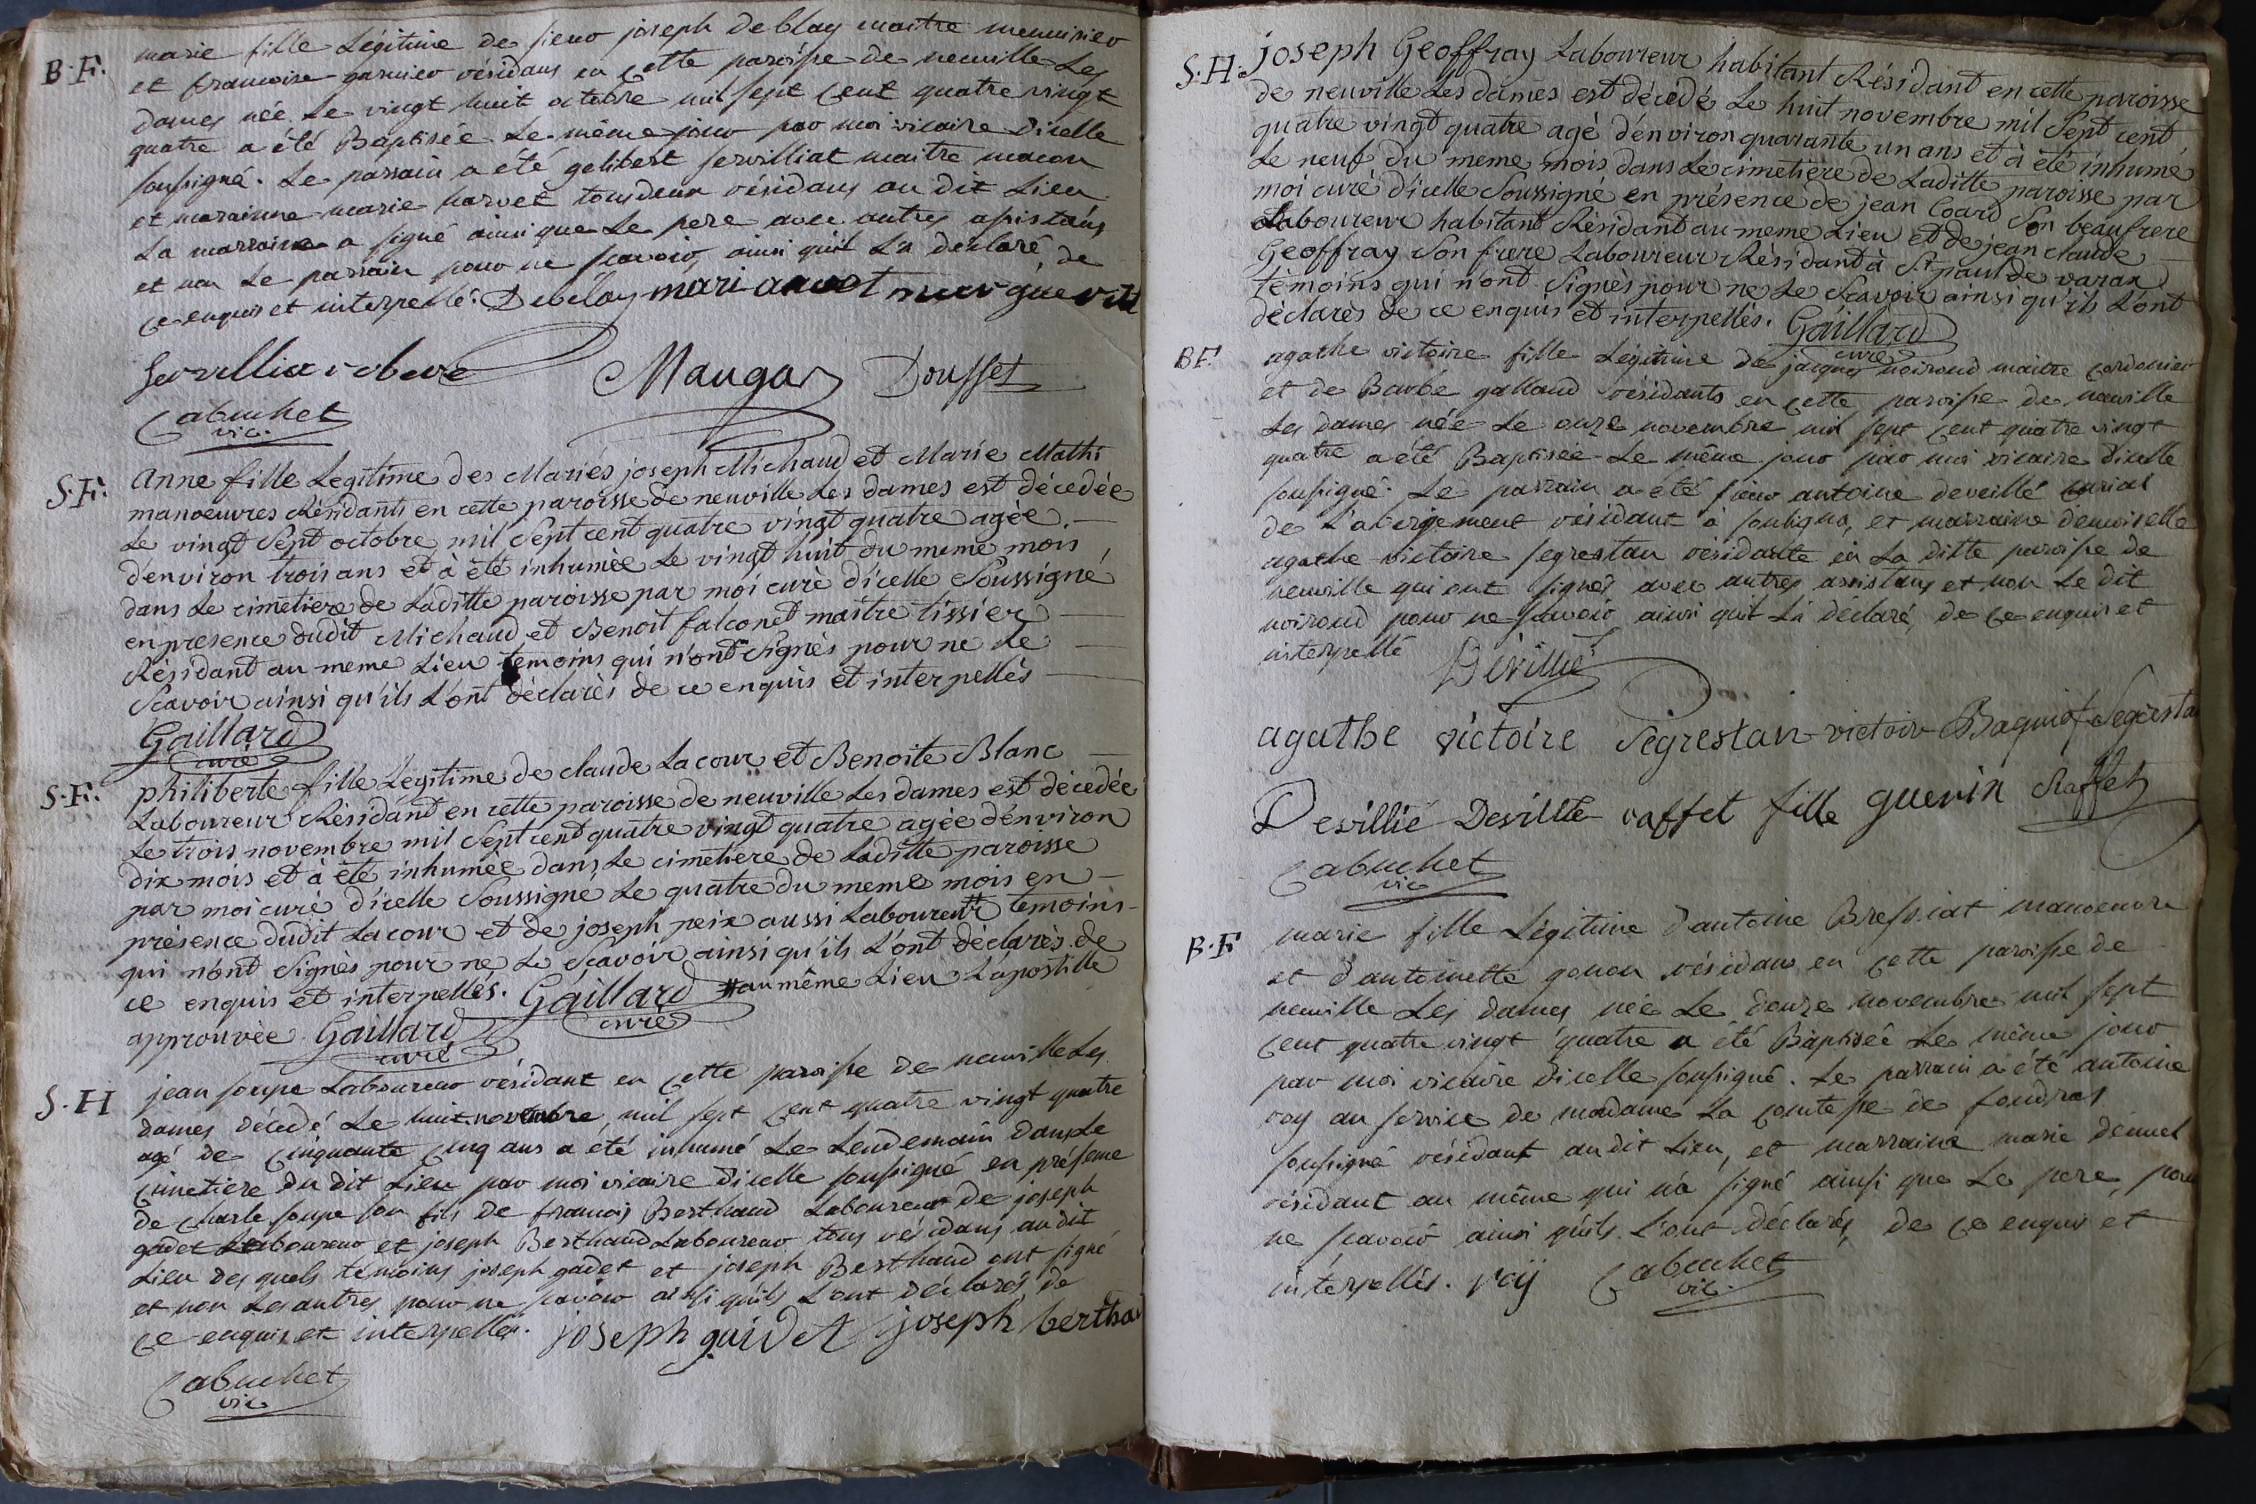 B.F. marie fille Légitime de sieur joseph De blay maitre menuisier
et francoise garnier résidans en cette paroisse de neuville Les
dames née Le vingt huit octobre mil sept cent quatre vingt
quatre a été Baptisée Le même jour par moi vicaire dicelle
soussigné. Le parrain a été gelibert servilliat maitre macon
et marainne marie harvet tous deux résidans au dit Lieu
La marraine a signé ainsi que Le pere avec autres assistans
et non Le parrain pour ne scavoir, ainsi quil La declaré, de
ce enquis et interpellé. Deblay mari arvet
Mangas Dousset
Cabuchet
vic.
S.F. Anne fille Legitime des Mariés joseph Michaud et Marie Mathi
manoeuvres Résidants en cette paroisse de neuville Les dames est décedée
Le vingt Sept octobre mil Sept cent quatre vingt quatre agée
d'environ trois ans et à été inhumée Le vingt huit du meme mois
dans Le cimetiere de Laditte paroisse par moi curé d'icelle Soussigné
en presence dudit Michaud et Benoit falconet maitre tissier
Résidant au meme Lieu temoins qui n'ont Signès pour ne Le
Scavoir ainsi qu'ils L'ont déclarès de ce enquis et interpellès
Gaillard
curé
S.F. philiberte fille Legitime de claude Lacour et Benoite Blanc
Laboureur Résidant en cette paroisse de neuville Les dames est décedée
Le trois novembre mil Sept cent quatre vingt quatre agée d'énviron
dix mois et à été inhumée dans Le cimetiere de Laditte paroisse
par moi curé d'icelle Soussigné Le quatre du meme mois en
présence dudit Lacour et de joseph peix aussi Laboureur # temoins
qui n'ont Signès pour ne Le Scavoir ainsi qu'ils L'ont déclarès de
ce enquis et interpellés. Gaillard # au même Lieu L'apostille
curé
approuvée Gaillard
curé
S.H jean soupe Laboureur résidant en cette paroisse de neuville Les
dames décédé Le huit novembre mil sept cent quatre vingt quatre
agé de cinquante cinq ans a été inhumé Le Lendemain dans Le
cimetiere du dit Lieu par moi vicaire dicelle soussigné en présence
de charle soupe son fils de francois Berthaud Laboureur de joseph
gadet Laboureur et joseph Berthaud Laboureur tous résidans audit
Lieu desquels témoins joseph gadet et joseph Berthaud ont signé
et non Les autres pour ne scavoir ainsi quils L'ont déclarés, de
ce enquis et interpellés. joseph gaidet joseph bertha
Cabuchet
vic
S.H. joseph Geoffray Laboureur habitant Résidant en cette paroisse
de neuville Les dames est décedé Le huit novembre mil Sept cent
quatre vingt quatre agé d'énviron quarante un ans et à été inhumé
Le neuf du meme mois dans Le cimetiere de Laditte paroisse par
moi curé d'icelle Soussigné en présence de jean Coard Son beaufrere
Laboureur habitant Résidant au meme Lieu et de jean claude
Geoffray Son frere Laboureur Résidant à St paul de varax
témoins qui n'ont Signés pour ne Le Scavoir ainsi qu'ils L'ont
déclarès de ce enquis et interpellés. Gaillard
curé
BF. agathe victoire fille Légitime de jacques noiroud maitre cordonier
et de Barbe galland résidants en cette paroisse de neuville
Les dames née Le onze novembre mil sept cent quatre vingt
quatre a été Baptisée Le même jour par moi vicaire dicelle
soussigné. Le parrain a été sieur antoine deveillé curial
de L'abergement résidant à and marraine demoiselle
agathe victoire segrestan résidante en La ditte paroisse de
neuville qui ont signés avec autres assistans et non Le dit
noiroud pour ne scavoir ainsi quil La déclaré, de ce enquis et
interpellé Devillié
agathe victoire Segrestan victoir Baquiot Segresta
Devillié Deville raffet fille guerin Raffet
Cabuchet
vic
B.F marie fille Légitime d'antoine Bressiat manoeuvre
et d'antoinette gonon résidans en cette paroisse de
neuville Les dames née Le douze novembre mil sept
cent quatre vingt quatre a été Baptisée Le même jour
par moi vicaire dicelle soussigné. Le parrain a été antoine
roy au service de madame La comtesse de foudras
soussigné résidant audit Lieu, et marraine marie
résidant au même qui n'a signé ainsi que Le pere, pour
ne scavoir ainsi quils L'ont déclarés, de ce enquis et
interpellés. roÿ Cabuchet
vic.